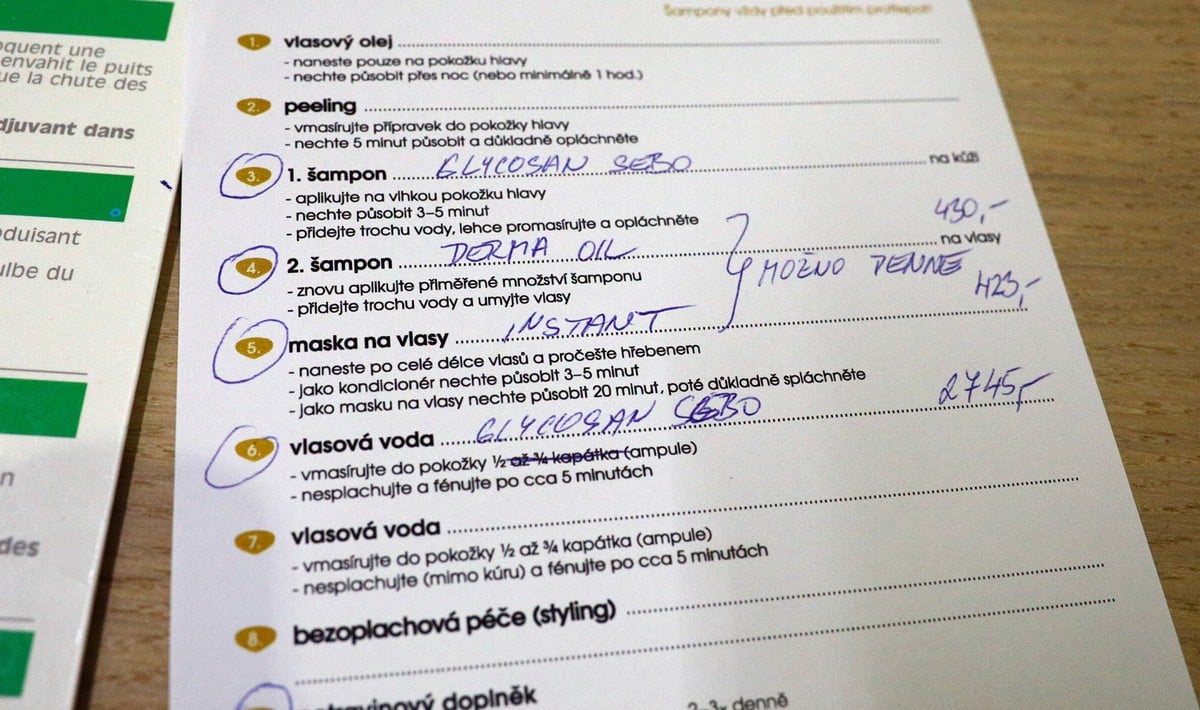 quent une
envahit le puits
ue la chute des
djuvant dans
duisant
ulbe du
des
Šampony vždy před použitím protřepat!
1. vlasový olej
- naneste pouze na pokožku hlavy
- nechte působit přes noc (nebo minimálně 1 hod.)
2. peeling
- vmasírujte přípravek do pokožky hlavy
- nechte 5 minut působit a důkladně opláchněte
3. 1. šampon GLYCOSAN SEBO na kůži
- aplikujte na vlhkou pokožku hlavy
- nechte působit 3–5 minut
- přidejte trochu vody, lehce promasírujte a opláchněte
430,-
4. 2. šampon DERMA OIL na vlasy
- znovu aplikujte přiměřené množství šamponu
- přidejte trochu vody a umyjte vlasy
MOŽNO DENNĚ
423,-
5. maska na vlasy INSTANT
- naneste po celé délce vlasů a pročešte hřebenem
- jako kondicionér nechte působit 3–5 minut
- jako masku na vlasy nechte působit 20 minut, poté důkladně spláchněte
2745,-
6. vlasová voda GLYCOSAN SEBO
- vmasírujte do pokožky ½ až ¾ kapátka (ampule)
- nesplachujte a fénujte po cca 5 minutách
7. vlasová voda
- vmasírujte do pokožky ½ až ¾ kapátka (ampule)
- nesplachujte (mimo kúru) a fénujte po cca 5 minutách
8. bezoplachová péče (styling)
doplněk
2-3x denně